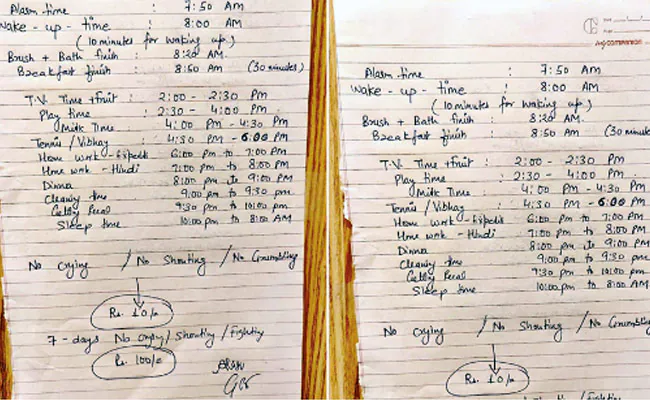 Alarm time : 7:50 AM
Wake-up-time : 8:00 AM
(10 minutes for waking up)
Brush + Bath finish : 8:20 AM
Breakfast finish : 8:50 AM (30 minutes)
T.V. Time + fruit : 2:00 - 2:30 Pm
Play time : 2:30 - 4:00 Pm
Milk Time : 4:00 Pm - 4:30 Pm
Tennis / Vibhay : 4:30 Pm - 6:00 Pm
Home work - : 6:00 pm to 7:00 Pm
Home work - Hindi : 7:00 pm to 8:00 Pm
Dinner 8:00 pm to 9:00 Pm
Cleaning time 9:00 pm to 9:30 pm
9:30 pm to 10:00 pm
Sleep time 10:00 pm to 8:00 AM
No Crying / No Shouting / No Grumbling
Rs. 10/-
7-days No Crying / Shouting / Fighting
Rs. 100/-
Alarm time : 7:50 AM
Wake-up-time : 8:00 AM
(10 minutes for waking up)
Brush + Bath finish : 8:20 AM
Breakfast finish : 8:50 AM (30 minute
T.V. Time + fruit : 2:00 - 2:30 Pm
Play time : 2:30 - 4:00 Pm
Milk Time : 4:00 Pm - 4:30 Pm
Tennis / Vibhay : 4:30 Pm - 6:00 Pm
Home work - : 6:00 pm to 7:00 Pm
Home work - Hindi : 7:00 pm to 8:00 Pm
Dinner 8:00 pm to 9:00 Pm
Cleaning time 9:00 pm to 9:30 pm
9:30 pm to 10:00 pm
Sleep time 10:00 pm to 8:00 AM
No Crying / No Shouting / No Grumbling
Rs. 10/-